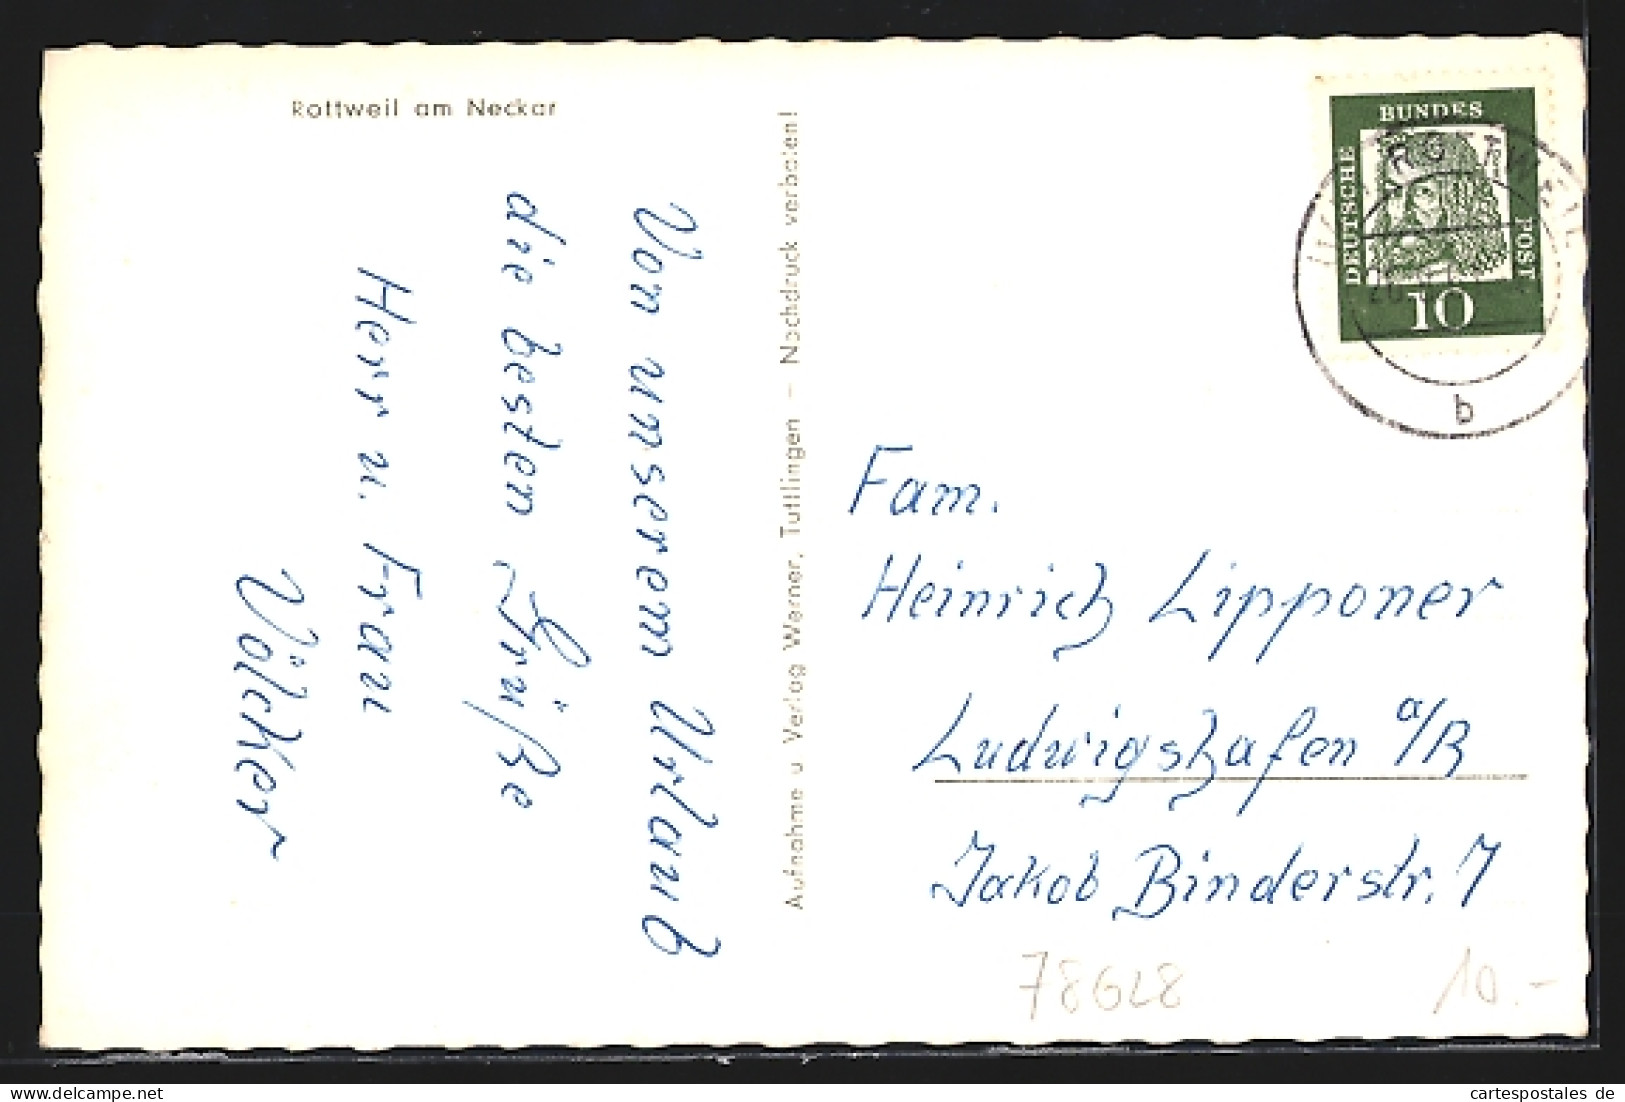 Rottweil am Neckar
Von unserem Urlaub
die besten Grüße
Herr u. Frau
Völcker
Aufnahme u Verlag Werner, Tuttlingen – Nachdruck verboten!
DEUTSCHE
BUNDES
POST
10
b
Fam.
Heinrich Lipponer
Ludwigshafen a/R
Jakob Binderstr. 7
78628
10.-
cartespostales de